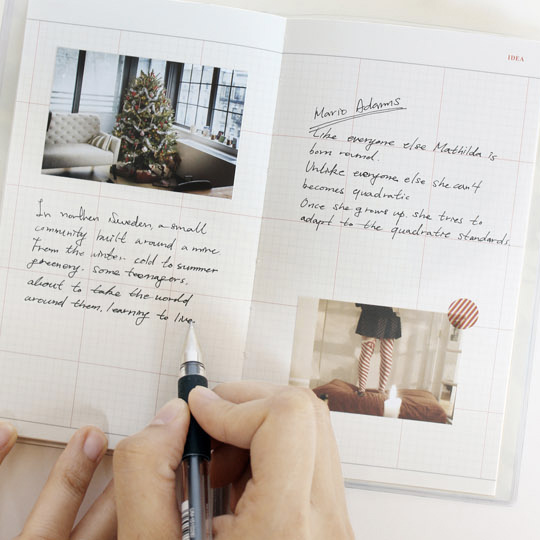 In northen Sweden, a small
community built around a mine
From the winter cold to summer
greenery. Some teenagers.
about to take the world
around them, learning to live.
IDEA
Mario Adamms
Like everyone else Mathilda is
born round.
Unlike everyone else she can't
becomes quadratic
Once she grows up, she tries to
adapt to the quadratic standards.